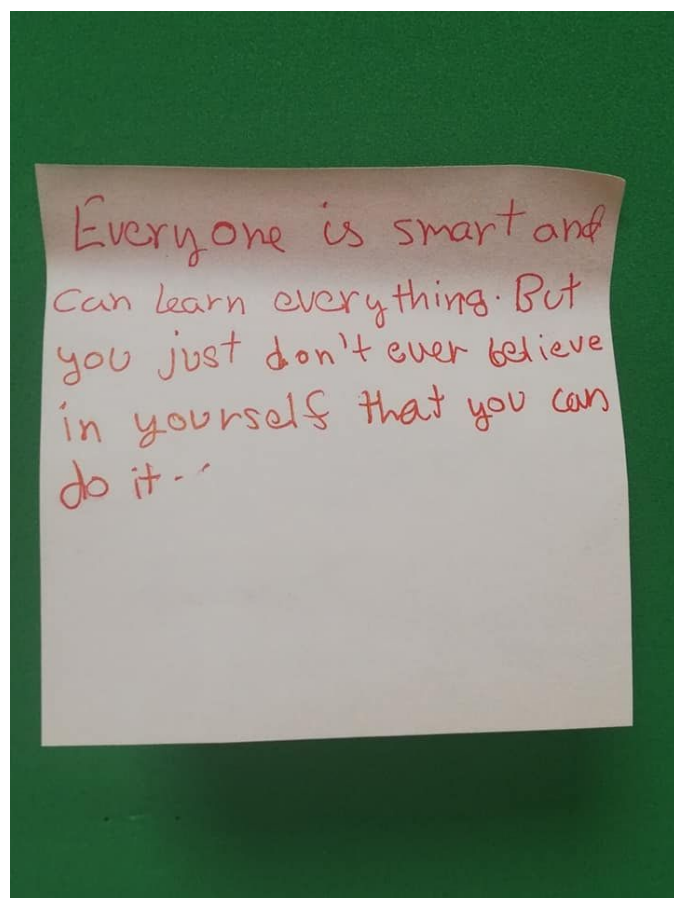 Everyone is smart and
can learn everything. But
you just don't ever believe
in yourself that you can
do it..